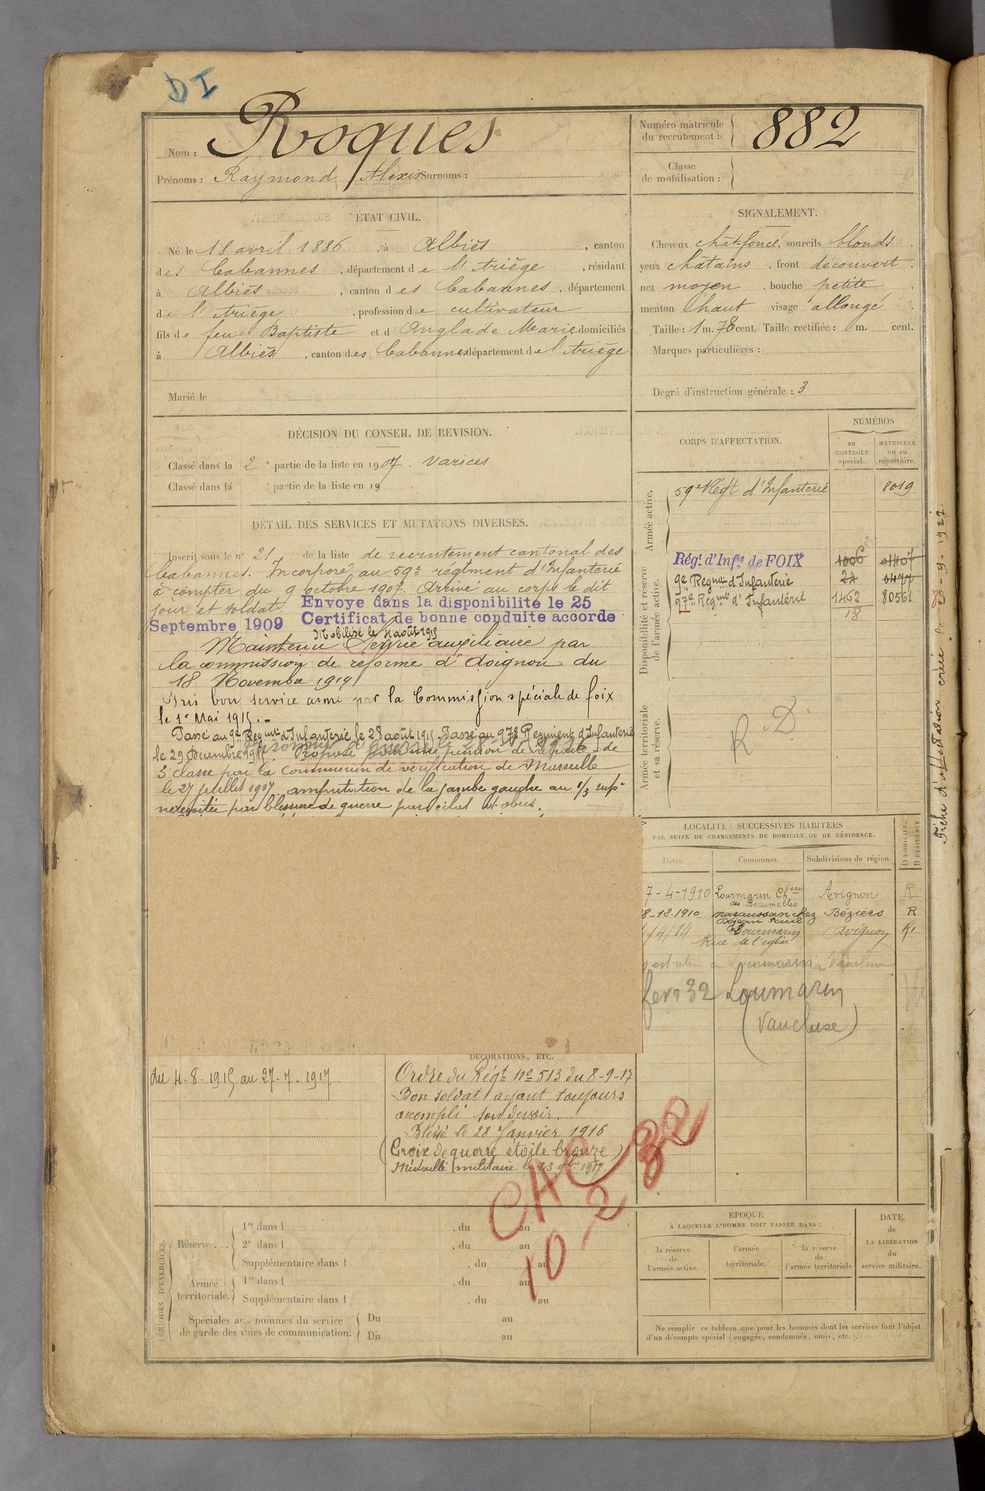 DI
Nom : Roques
Prénoms : Raymond Alexis Surnoms :
Numéro matricule du recrutement : 882
Classe de mobilisation :
ÉTAT CIVIL.
Né le 18 avril 1886, à Albiès, canton
des Cabannes, département de l'Ariège, résidant
à Albiès, canton des Cabannes, département
de l'Ariège, profession de cultivateur
fils de feu Baptiste et d'Anglade Marie domiciliés
à Albiès, canton des Cabannes département de l'Ariège
Marié le
SIGNALEMENT.
Cheveux chât. foncé, sourcils blonds
yeux châtains, front découvert
nez moyen, bouche petite
menton haut visage allongé
Taille : 1 m. 78 cent. Taille rectifiée : m. cent.
Marques particulières :
Degré d'instruction générale : 3
DÉCISION DU CONSEIL DE REVISION.
Classé dans la 2e partie de la liste en 1907. Varices
Classé dans la partie de la liste en 19
DÉTAIL DES SERVICES ET MUTATIONS DIVERSES.
Inscrit sous le n° 21 de la liste de recrutement cantonal des
Cabannes. Incorporé au 59e régiment d'Infanterie
à compter du 9 octobre 1907. Arrivé au corps le dit
jour et soldat. Envoyé dans la disponibilité le 25
Septembre 1909 Certificat de bonne conduite accordé
Mobilisé le 4 août 1915
Maintenu Service auxiliaire par
la commission de réforme d'Avignon du
18 Novembre 1914
Pris bon service armé par la Commission spéciale de foix
le 1er Mai 1915.-
Passé au 9e Regiment d'Infanterie le 28 août 1915. Passé au 97e Regiment d'Infanterie
le 29 Décembre 1915. Proposé pour une pension de retraite de
5e classe par la Commission de vérification de Marseille
le 27 juillet 1917 amputation de la jambe gauche au 1/3 supr
nécessitée par blessure de guerre par éclat d'obus.
CORPS D'AFFECTATION.
NUMÉROS
au CONTRÔLE spécial.
MATRICULE ou au répertoire.
Armée active.
59e Régt d'Infanterie 8019
Disponibilité et réserve de l'armée active.
Régt d'Infie de FOIX 1006 01407
9e Regmt d'Infanterie 24 0477
97e Regmt d'Infanterie 1462 80561
18
Armée territoriale et sa réserve.
R.D.
LOCALITÉS SUCCESSIVES HABITÉES
PAR SUITE DE CHANGEMENTS DE DOMICILE OU DE RÉSIDENCE.
Dates. Communes. Subdivisions de région.
7-4-1910 Lourmarin Chau des Beaumelles Avignon R
8-12-1910 Maraussan chez Béziers R
Lourmarin Rue de l'église Avignon R
fev 32 Lourmarin
(Vaucluse)
Fiche d'affectation créée
du 4-8-1915 au 27-7-1917
DÉCORATIONS, ETC.
Ordre du Régt No 513 du 8-9-17
Bon soldat ayant toujours
accompli son devoir.
Blessé le 28 Janvier 1916
(Croix de guerre étoile bronze)
Médaille militaire
CAC
10-2-32
PÉRIODES D'EXERCICES.
Réserve... 1re dans l , du au
2e dans l , du au
Supplémentaire dans l , du au
Armée territoriale. 1re dans l , du au
Supplémentaire dans l , du au
Spéciales aux hommes du service de garde des voies de communication. Du au
Du au
ÉPOQUE
À LAQUELLE L'HOMME DOIT PASSER DANS :
la réserve de l'armée active.
l'armée territoriale.
la réserve de l'armée territoriale
DATE de LA LIBÉRATION du service militaire.
Ne remplir ce tableau que pour les hommes dont les services font l'objet
d'un décompte spécial (engagés, condamnés, omis, etc.).